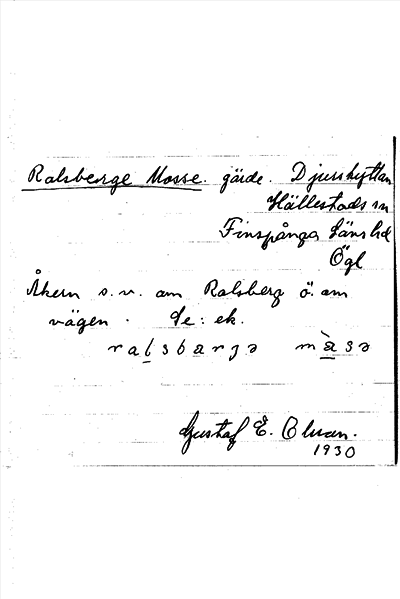 Ralsberge Mosse. gärde. Djurshyttan
Hällestads sn
Finspånga läns hd
Ögl
Åkern s.v. om Ralsberg ö. om
vägen. Se: ek.
ralsbargə måsə
Gustaf E. Olsson.
1930